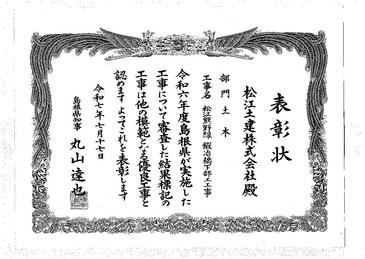 表彰状
松江土建株式会社 殿
部門 土木
工事名 松江熊野線 鍛冶橋下部工工事
令和六年度島根県が実施した
工事について審査した結果標記の
工事は他の模範となる優良工事と
認めます よってこれを表彰します
令和七年七月十七日
島根県知事 丸山達也